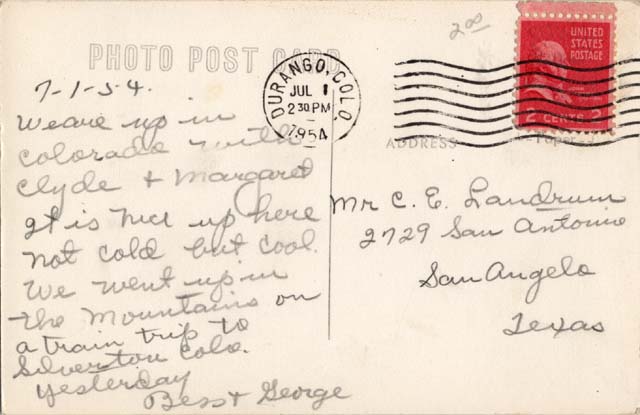 2.00
PHOTO POST CARD
7-1-54.
We are up in
Colorado with
Clyde & Margaret
It is nice up here
not cold but cool.
We went up in
the Mountains on
a train trip to
Silverton Colo.
yesterday
Bess & George
DURANGO, COLO.
JUL 1
2 30 PM
1954
UNITED
STATES
POSTAGE
2 CENTS 2
ADDRESS
Mr C. E. Landrum
2729 San Antonio
San Angelo
Texas